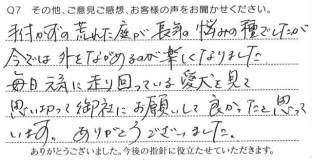 Q7 その他、ご意見ご感想、お客様の声をお聞かせください。
手付かずの荒れた庭が長年の悩みの種でしたが
今では外をながめるのが楽しくなりました
毎日元気に走り回っている愛犬を見て
思い切って御社にお願いして良かったと思って
います。ありがとうございました。
ありがとうございました。今後の指針に役立たせていただきます。